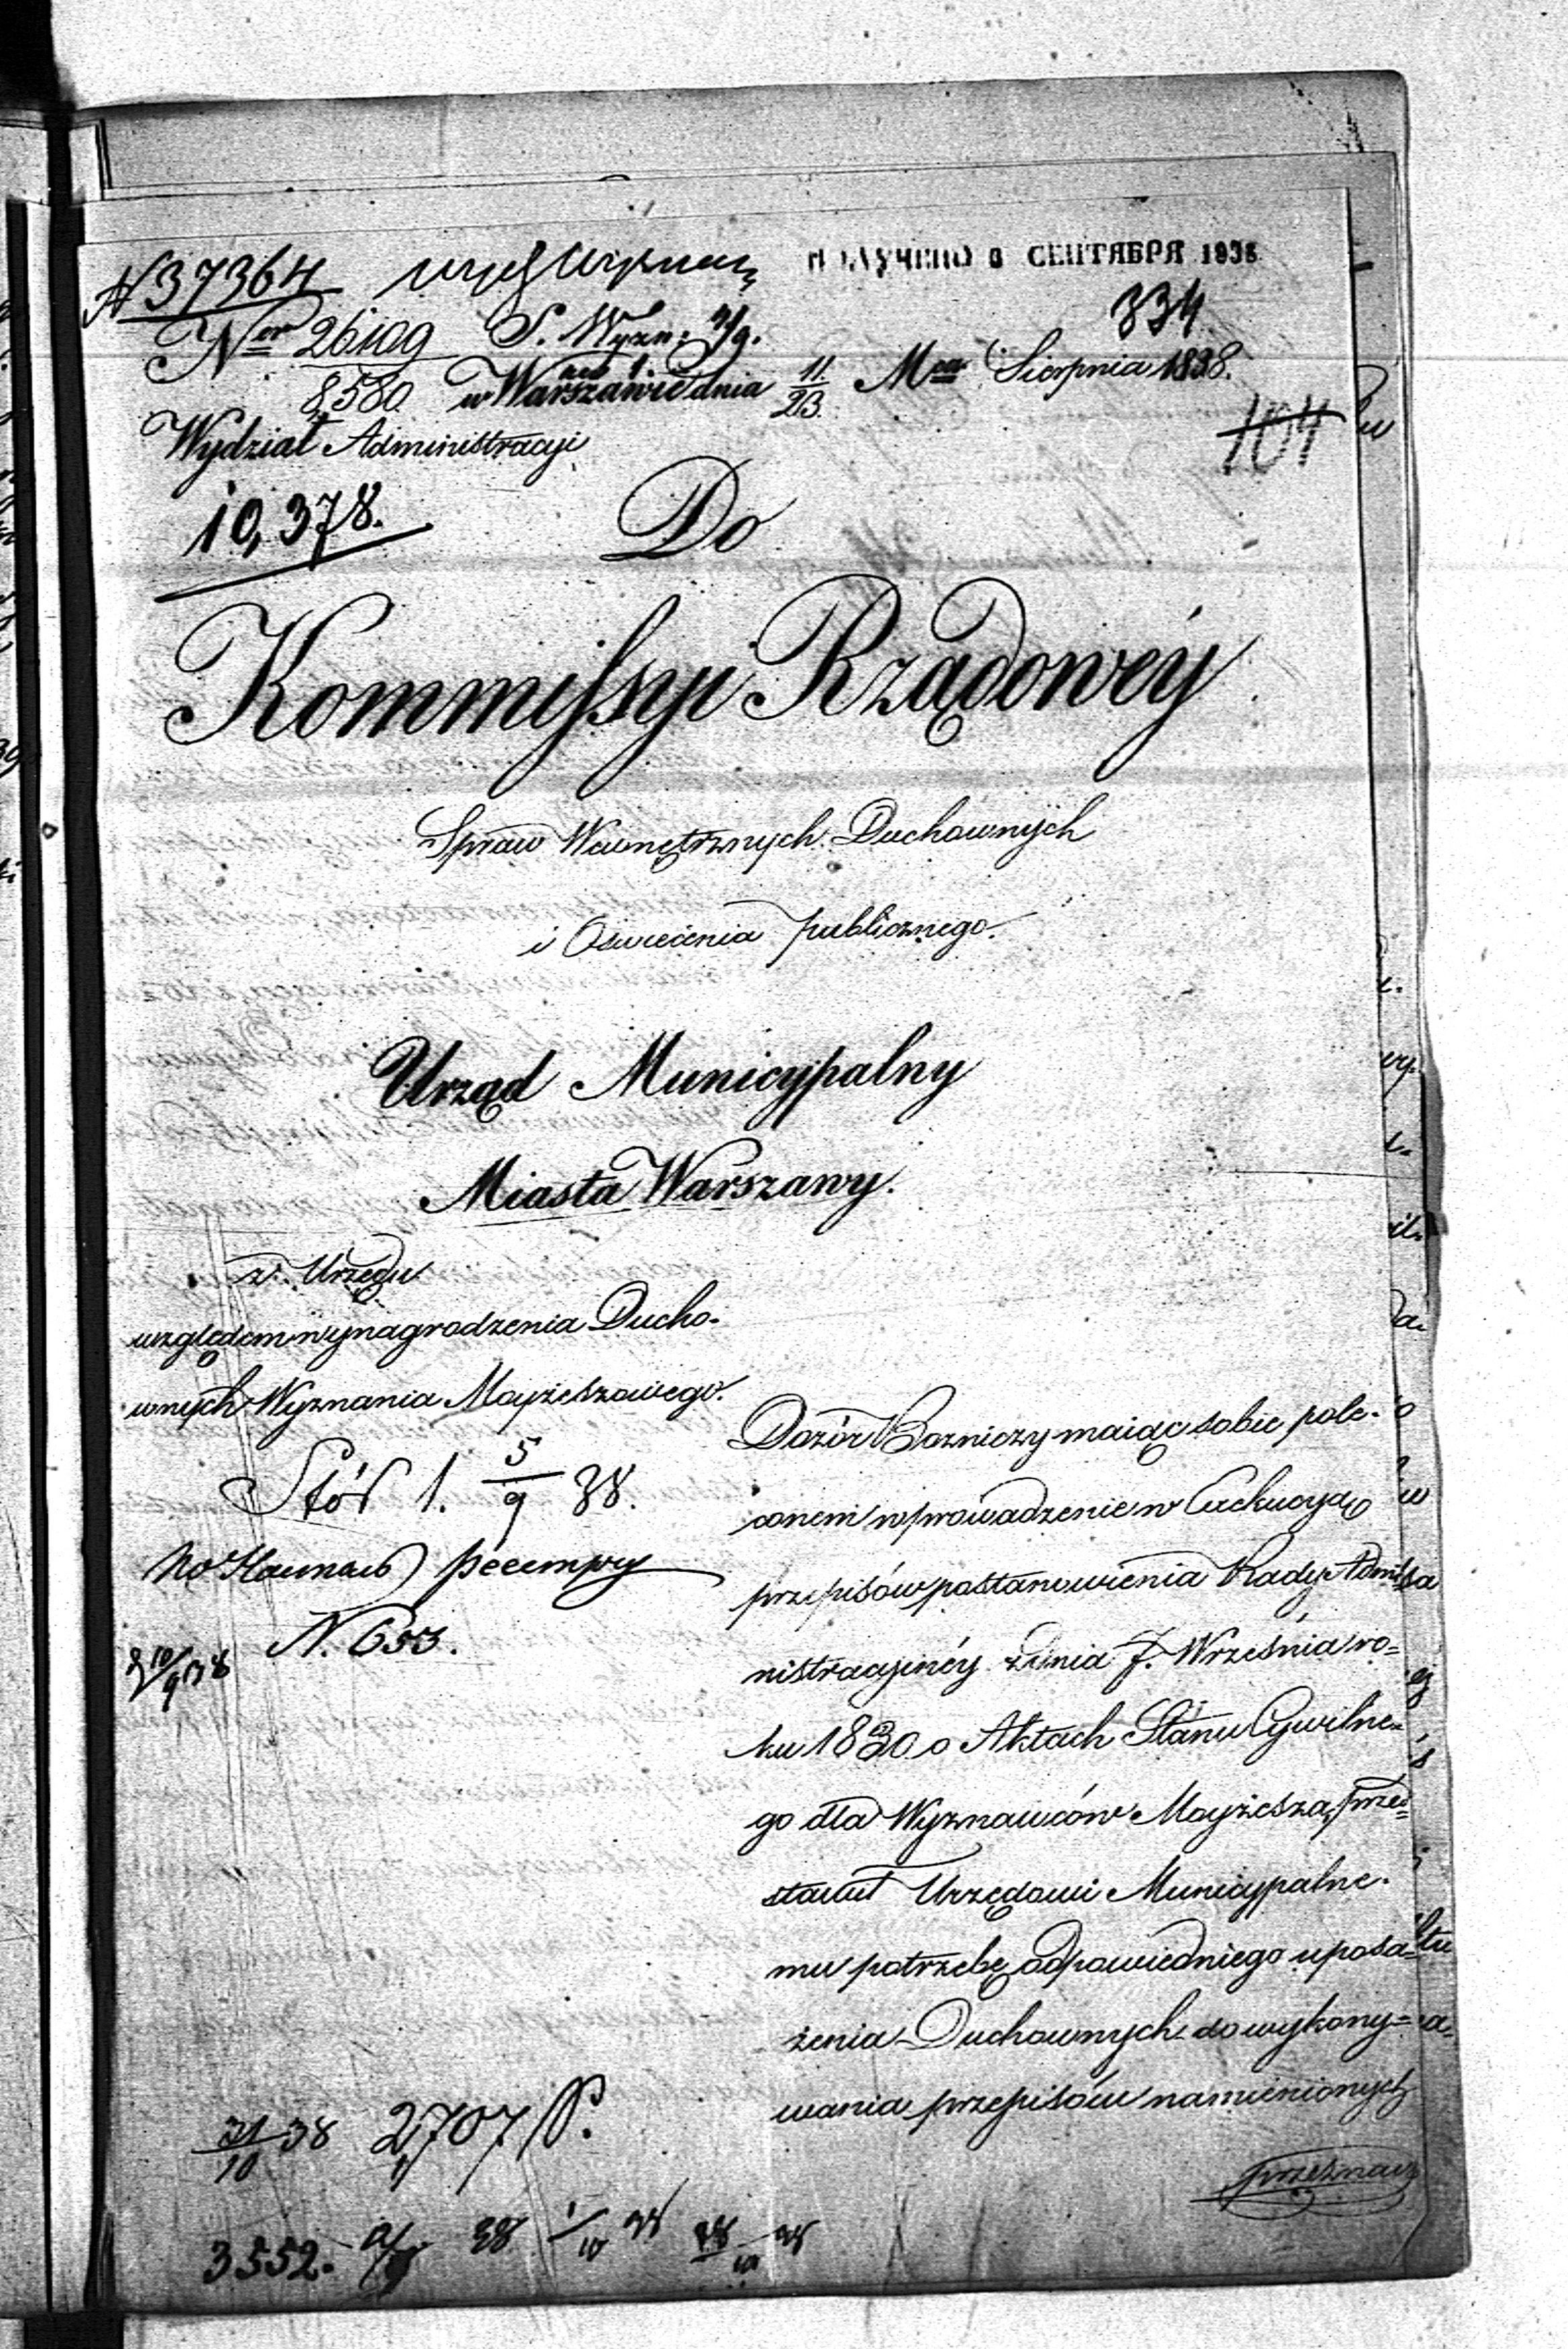 N 37364
ПОЛУЧЕНО 8 СЕНТЯБРЯ 1838
334
Ner 26109 S. Wyzn. 4/9.
8,580. w Warszawie dnia 11./23. Mca Sierpnia 1838.
104
Wydział Administracyi
10,378.
Do
Kommissyi Rządowéy
Spraw Wewnętrznych Duchownych
i Oświecenia publicznego.
Urząd Municypalny
Miasta Warszawy.
z Urzędu
względem wynagrodzenia Ducho-
wnych Wyznania Mojżeszowego.
5/9 38.
N. 653.
Dozór Bożniczy maiąc sobie pole-
conem wprowadzenie w Exekucyą
przepisów postanowienia Rady Admi-
nistracyinéy z dnia 7. Września ro-
ku 1830 o Aktach Stanu Cywilne-
go dla Wyznawców Mojżesza, przed-
stawił Urzędowi Municypalne-
mu potrzebę odpowiedniego uposa-
żenia Duchownych do wykony-
wania przepisów namienionych
przeznacz
31/10 38 2707 P.
3552.